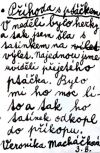 Příhoda s ptáčkem
V neděli bylo hezky
a tak jsem šla s
tatínkem na výlet
výlet. Najednou jsme
uviděli přejetého
ptáčka. Bylo
mi ho moc lí-
to a tak ho
tatínek odkopl
do příkopu.
Veronika Macháčková
3.B.